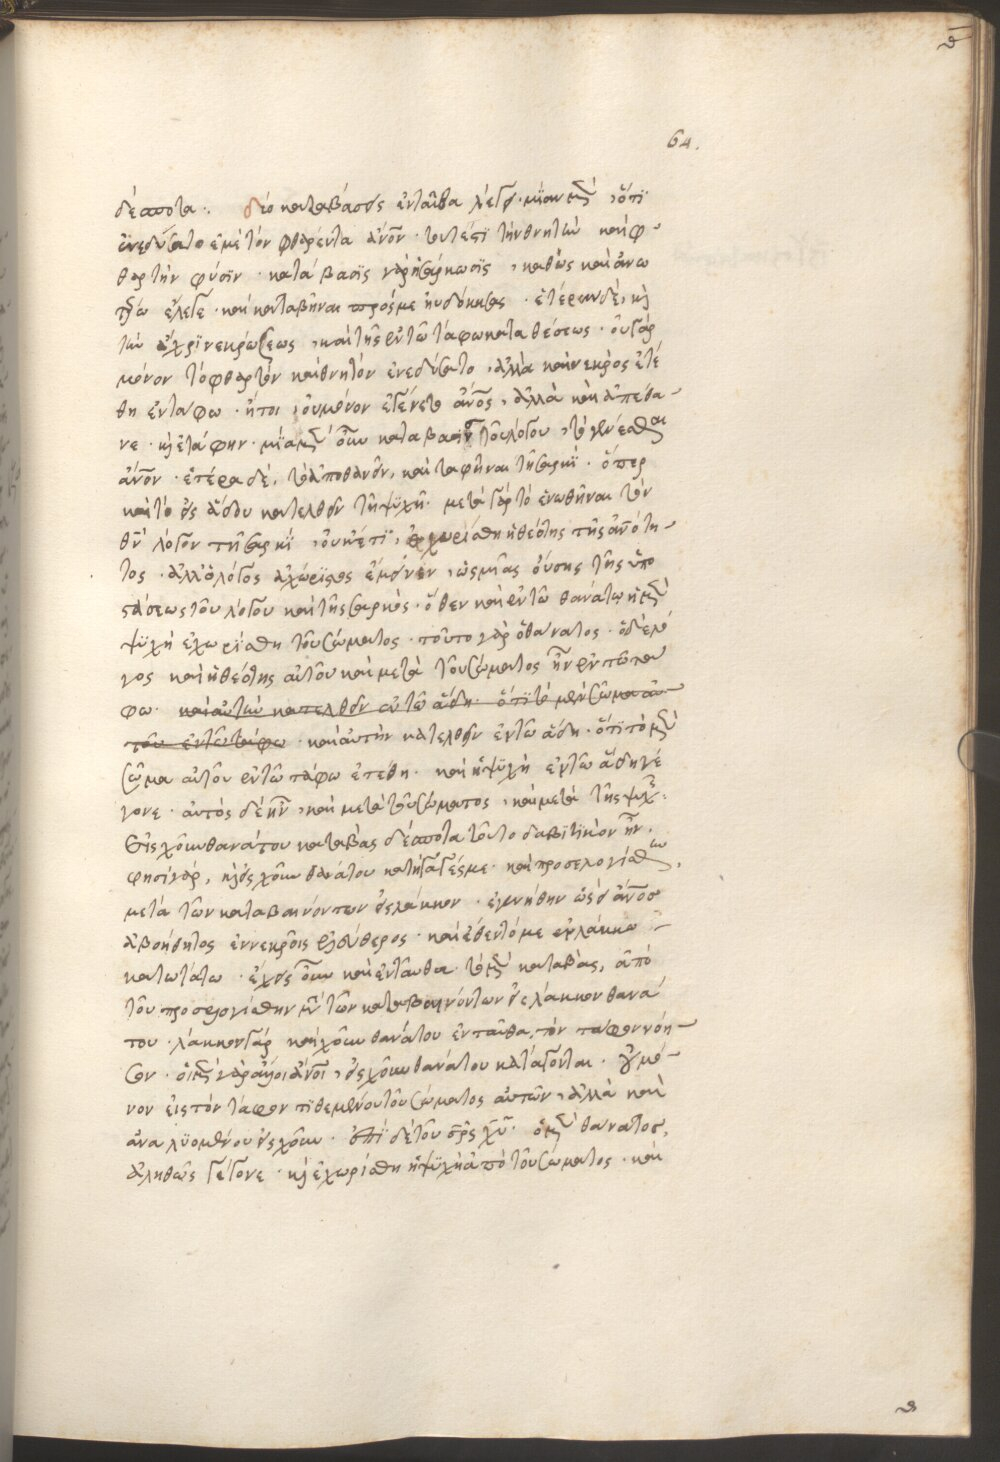 θ
64.
δέσποτα·. δύο καταβάσεις ἐνταῦθα λέγει· μίαν μὲν, ὅτι
ἐνεδύσατο ἐμὲ τὸν φθαρέντα ἄνον· τουτέστι τὴν θνητὴν καὶ φ-
θαρτὴν φύσιν· κατάβασις γὰρ ἡ σάρκωσις, καθὼς καὶ ἄνω
ἔλεγε· καὶ καταβῆναι πρός με ηὐδόκησας· ἑτέραν δὲ, κỳ
τὴν ἄχρι νεκρώσεως, καὶ τῆς ἐν τῷ τάφω καταθέσεως· οὐ γὰρ
μόνον τὸ φθαρτὸν καὶ θνητὸν ἐνεδύσατο, ἀλλὰ καὶ νεκρὸς ἐτέ
θη ἐν τάφω· ἤτοι, οὐ μόνον ἐγένετο ἄνος, ἀλλὰ καὶ ἀπέθα-
νε· κỳ ἐτάφην· μία μὲν οὖν κατάβασις τοῦ λόγου, τὸ γενέσθαι
ἄνον· ἑτέρα δὲ, τὸ ἀποθανεῖν, καὶ ταφῆναι τῇ σαρκί· ὅπερ
καὶ τὸ εἰς ἅδου κατελθεῖν τῇ ψυχῇ· μετὰ γὰρ τὸ ἑνωθῆναι τὸν
θν λόγον τῇ σαρκί, οὐκέτι, ἐχωρίσθη ἡ θεότης τῆς ἀνότη-
τος· ἀλλ' ὁ λόγος ἀχώριστος ἔμεινεν, ὡς μιᾶς οὔσης τῆς ὑπο
στάσεως τοῦ λόγου καὶ τῆς σαρκός· ὅθεν καὶ ἐν τῷ θανάτω ἡ μὲν
ψυχὴ ἐχωρίσθη τοῦ σώματος· τοῦτο γὰρ ὁ θάνατος· ὁ δὲ λό
γος καὶ ἡ θεότης αὐτοῦ καὶ μετὰ τοῦ σώματος ἦν ἐν τῷ τά
φω· καὶ αὐτὴν κατελθεῖν ἐν τῷ ἅδη· ὅτι τὸ μὲν σῶμα αὐ-
τοῦ ἐν τῷ τάφω· καὶ αὐτὴν κατελθεῖν ἐν τῷ ἅδη· ὅτι τὸ μὲν
σῶμα αὐτοῦ ἐν τῷ τάφω ἐτέθη· καὶ ἡ ψυχὴ ἐν τῷ ἅδη γέ
γονε· αὐτὸς δὲ ἦν, καὶ μετὰ τοῦ σώματος, καὶ μετὰ τῆς ψυχ.
Εἰς χοῦν θανάτου καταβὰς δέσποτα τοῦτο δαβιτικὸν ἦν.
φησὶ γὰρ, κỳ εἰς χοῦν θανάτου κατήγαγές με· καὶ προσελογίσθην,
μετὰ τῶν καταβαινόντων εἰς λάκκον· ἐγενήθην ὡσεὶ ἄνος
ἀβοήθητος ἐν νεκροῖς ἐλεύθερος· καὶ ἔθεντό με ἐν λάκκω
κατωτάτω· ἔχεις οὖν καὶ ἐνταῦθα τὸ μὲν καταβὰς, ἀπὸ
τοῦ προσελογίσθην μετὰ τῶν καταβαινόντων εἰς λάκκον θανά
του· λάκκον γὰρ καὶ χοῦν θανάτου ἐνταῦθα, τὸν τάφον νόη-
σον· οἱ μὲν γὰρ ἄλλοι ἄνοι, εἰς χοῦν θανάτου κατάγονται· οὐ μό-
νον εἰς τὸν τάφον τιθεμένου τοῦ σώματος αὐτῶν, ἀλλὰ καὶ
ἀναλυομένου εἰς χοῦν· ἐπὶ δὲ τοῦ σρς χυ· ὁ μὲν θάνατος,
ἀληθῶς γέγονε· κỳ ἐχωρίσθη ἡ ψυχὴ ἀπὸ τοῦ σώματος· καὶ
θ